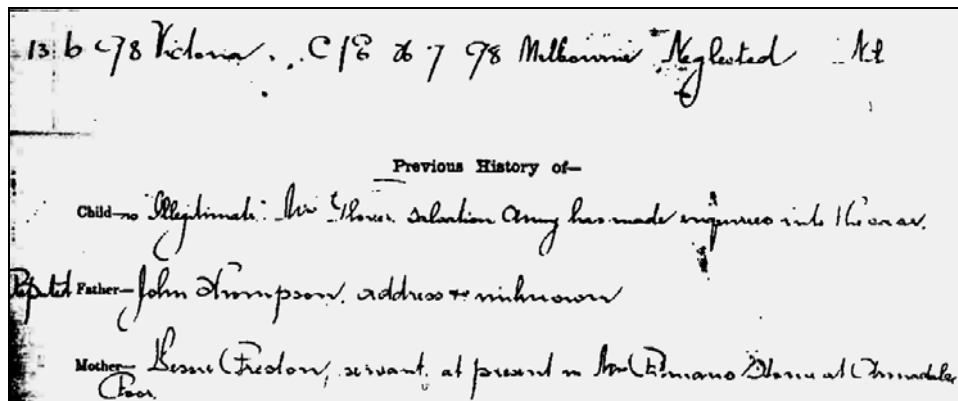 13 6 98 Victoria. C/E 26 7 98 Melbourne Neglected Nil
Previous History of—
Child— Illegitimate. Salvation Army has made enquiries into the case.
Reputed Father— John Thompson. address unknown
Mother— Preston, servant, at present in Home at Armadale
Poor.